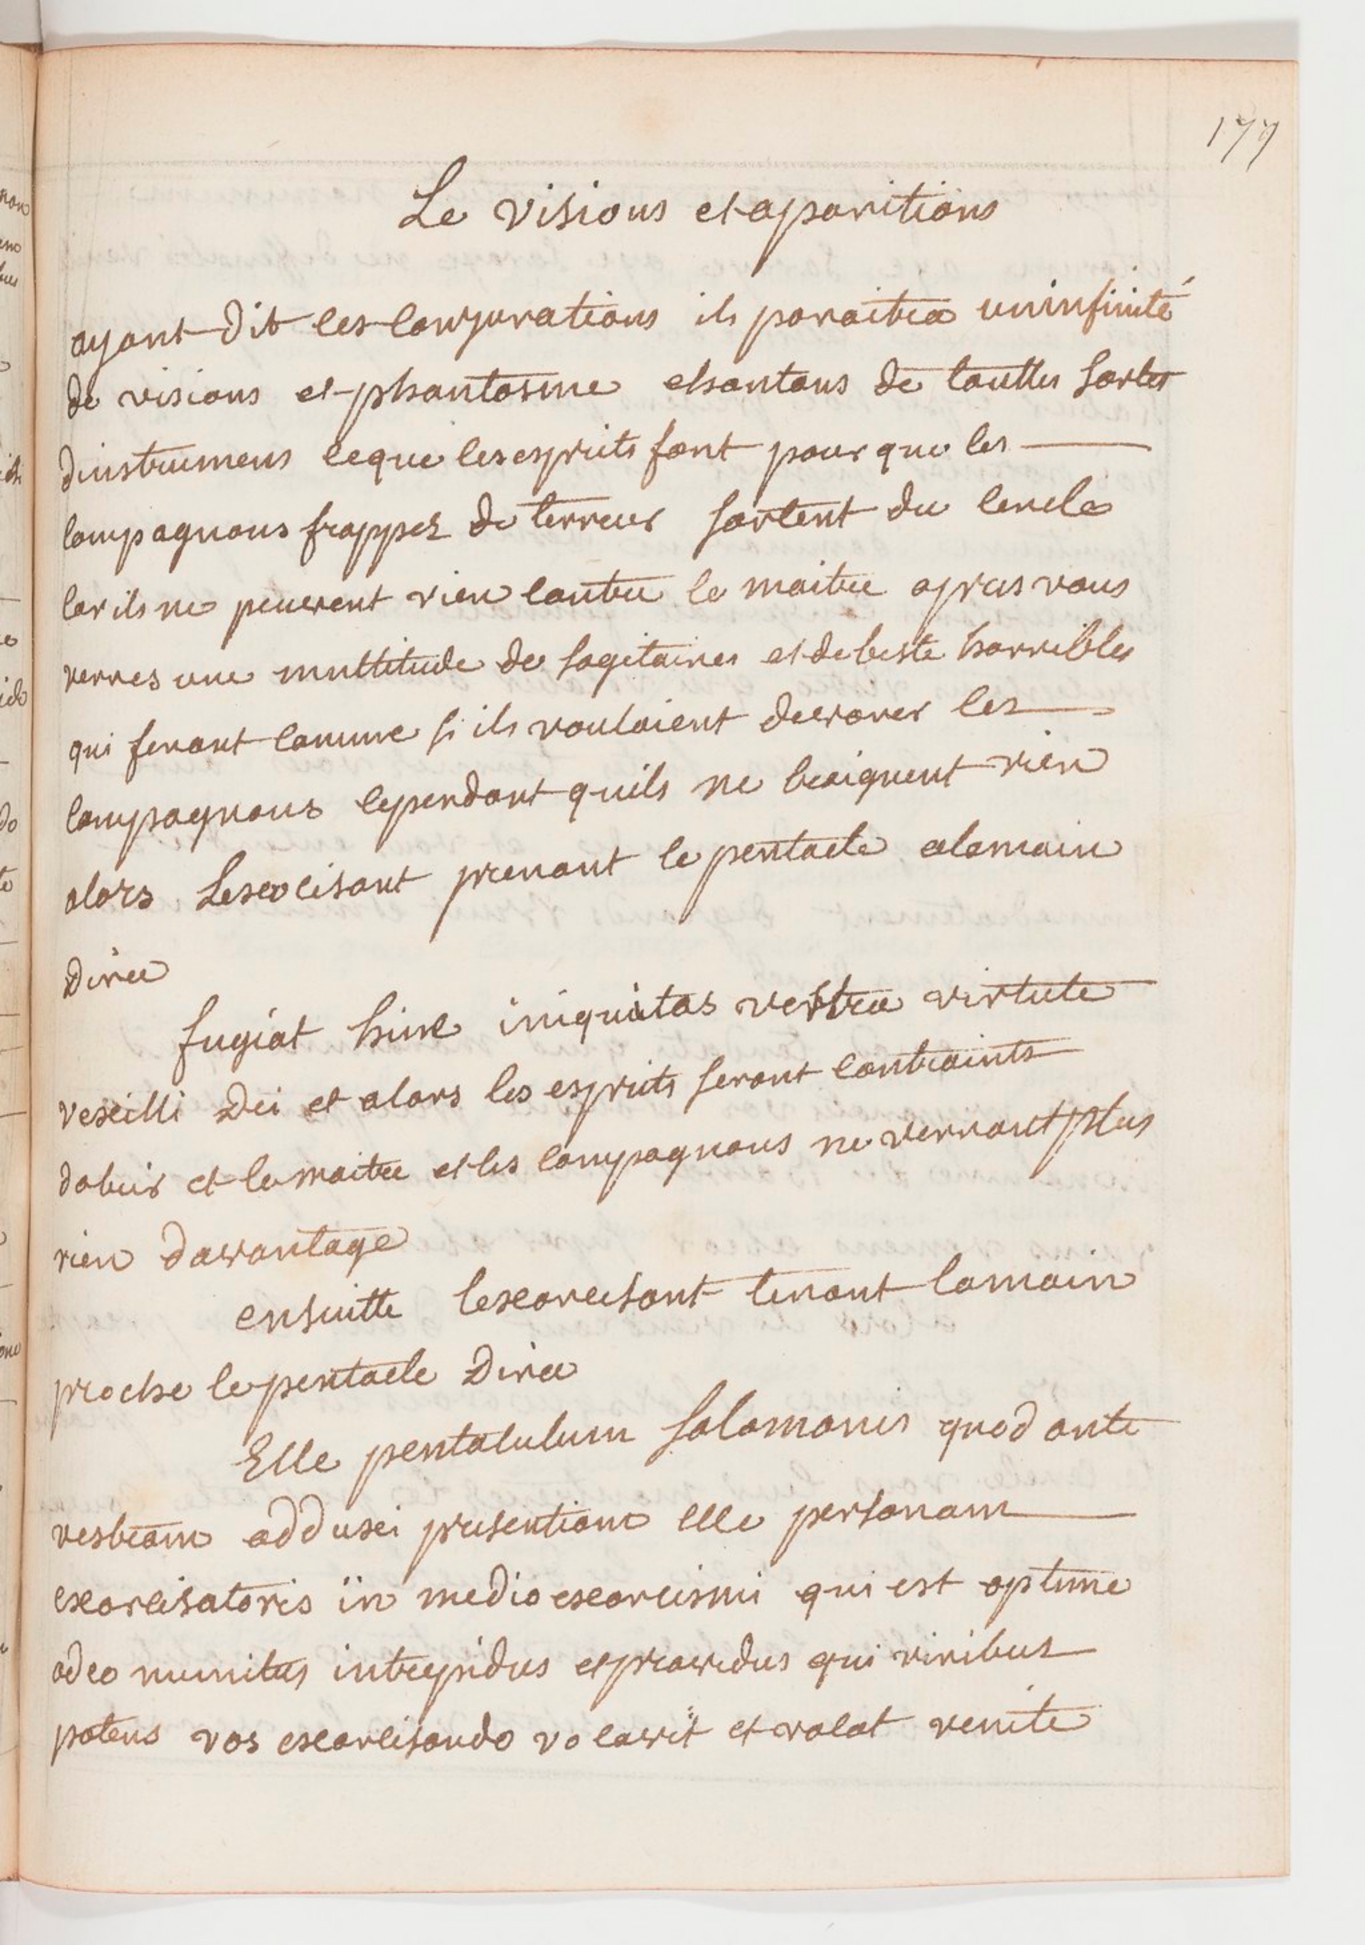 177
Le visions et aparitions
ayant dit les conjurations ils paraitra uninfinité
de visions et phantosme chantans de touttes sortes
dinstrumens ceque les esprits font pour que les
compagnons frappez de terreur sortent du cercle
car ils ne peuvent rien contre le maitre apres vous
verres une multitude de sagitaires et debeste horribles
qui feront comme si ils voulaient devorer les
compagnons cependant quils ne craignent rien
alors Lexorcisant prenant le pentacle alamain
Dira
fugiat hinc iniquitas vestra virtute
vexilli Dei et alors les esprits seront contraints
dobeir et le maitre et les compagnons ne verront plus
rien davantage
ensuitte lexorcisant tenant lamain
proche le pentacle Dira
Elle pentaculum Salomonis quod ante
vestram adduxi presentiam elle personam
exorcisatoris in medio exorcismi qui est optime
adeo munitus intrepidus et providus qui viribus
potens vos exorcisando vocavit et vocat venite